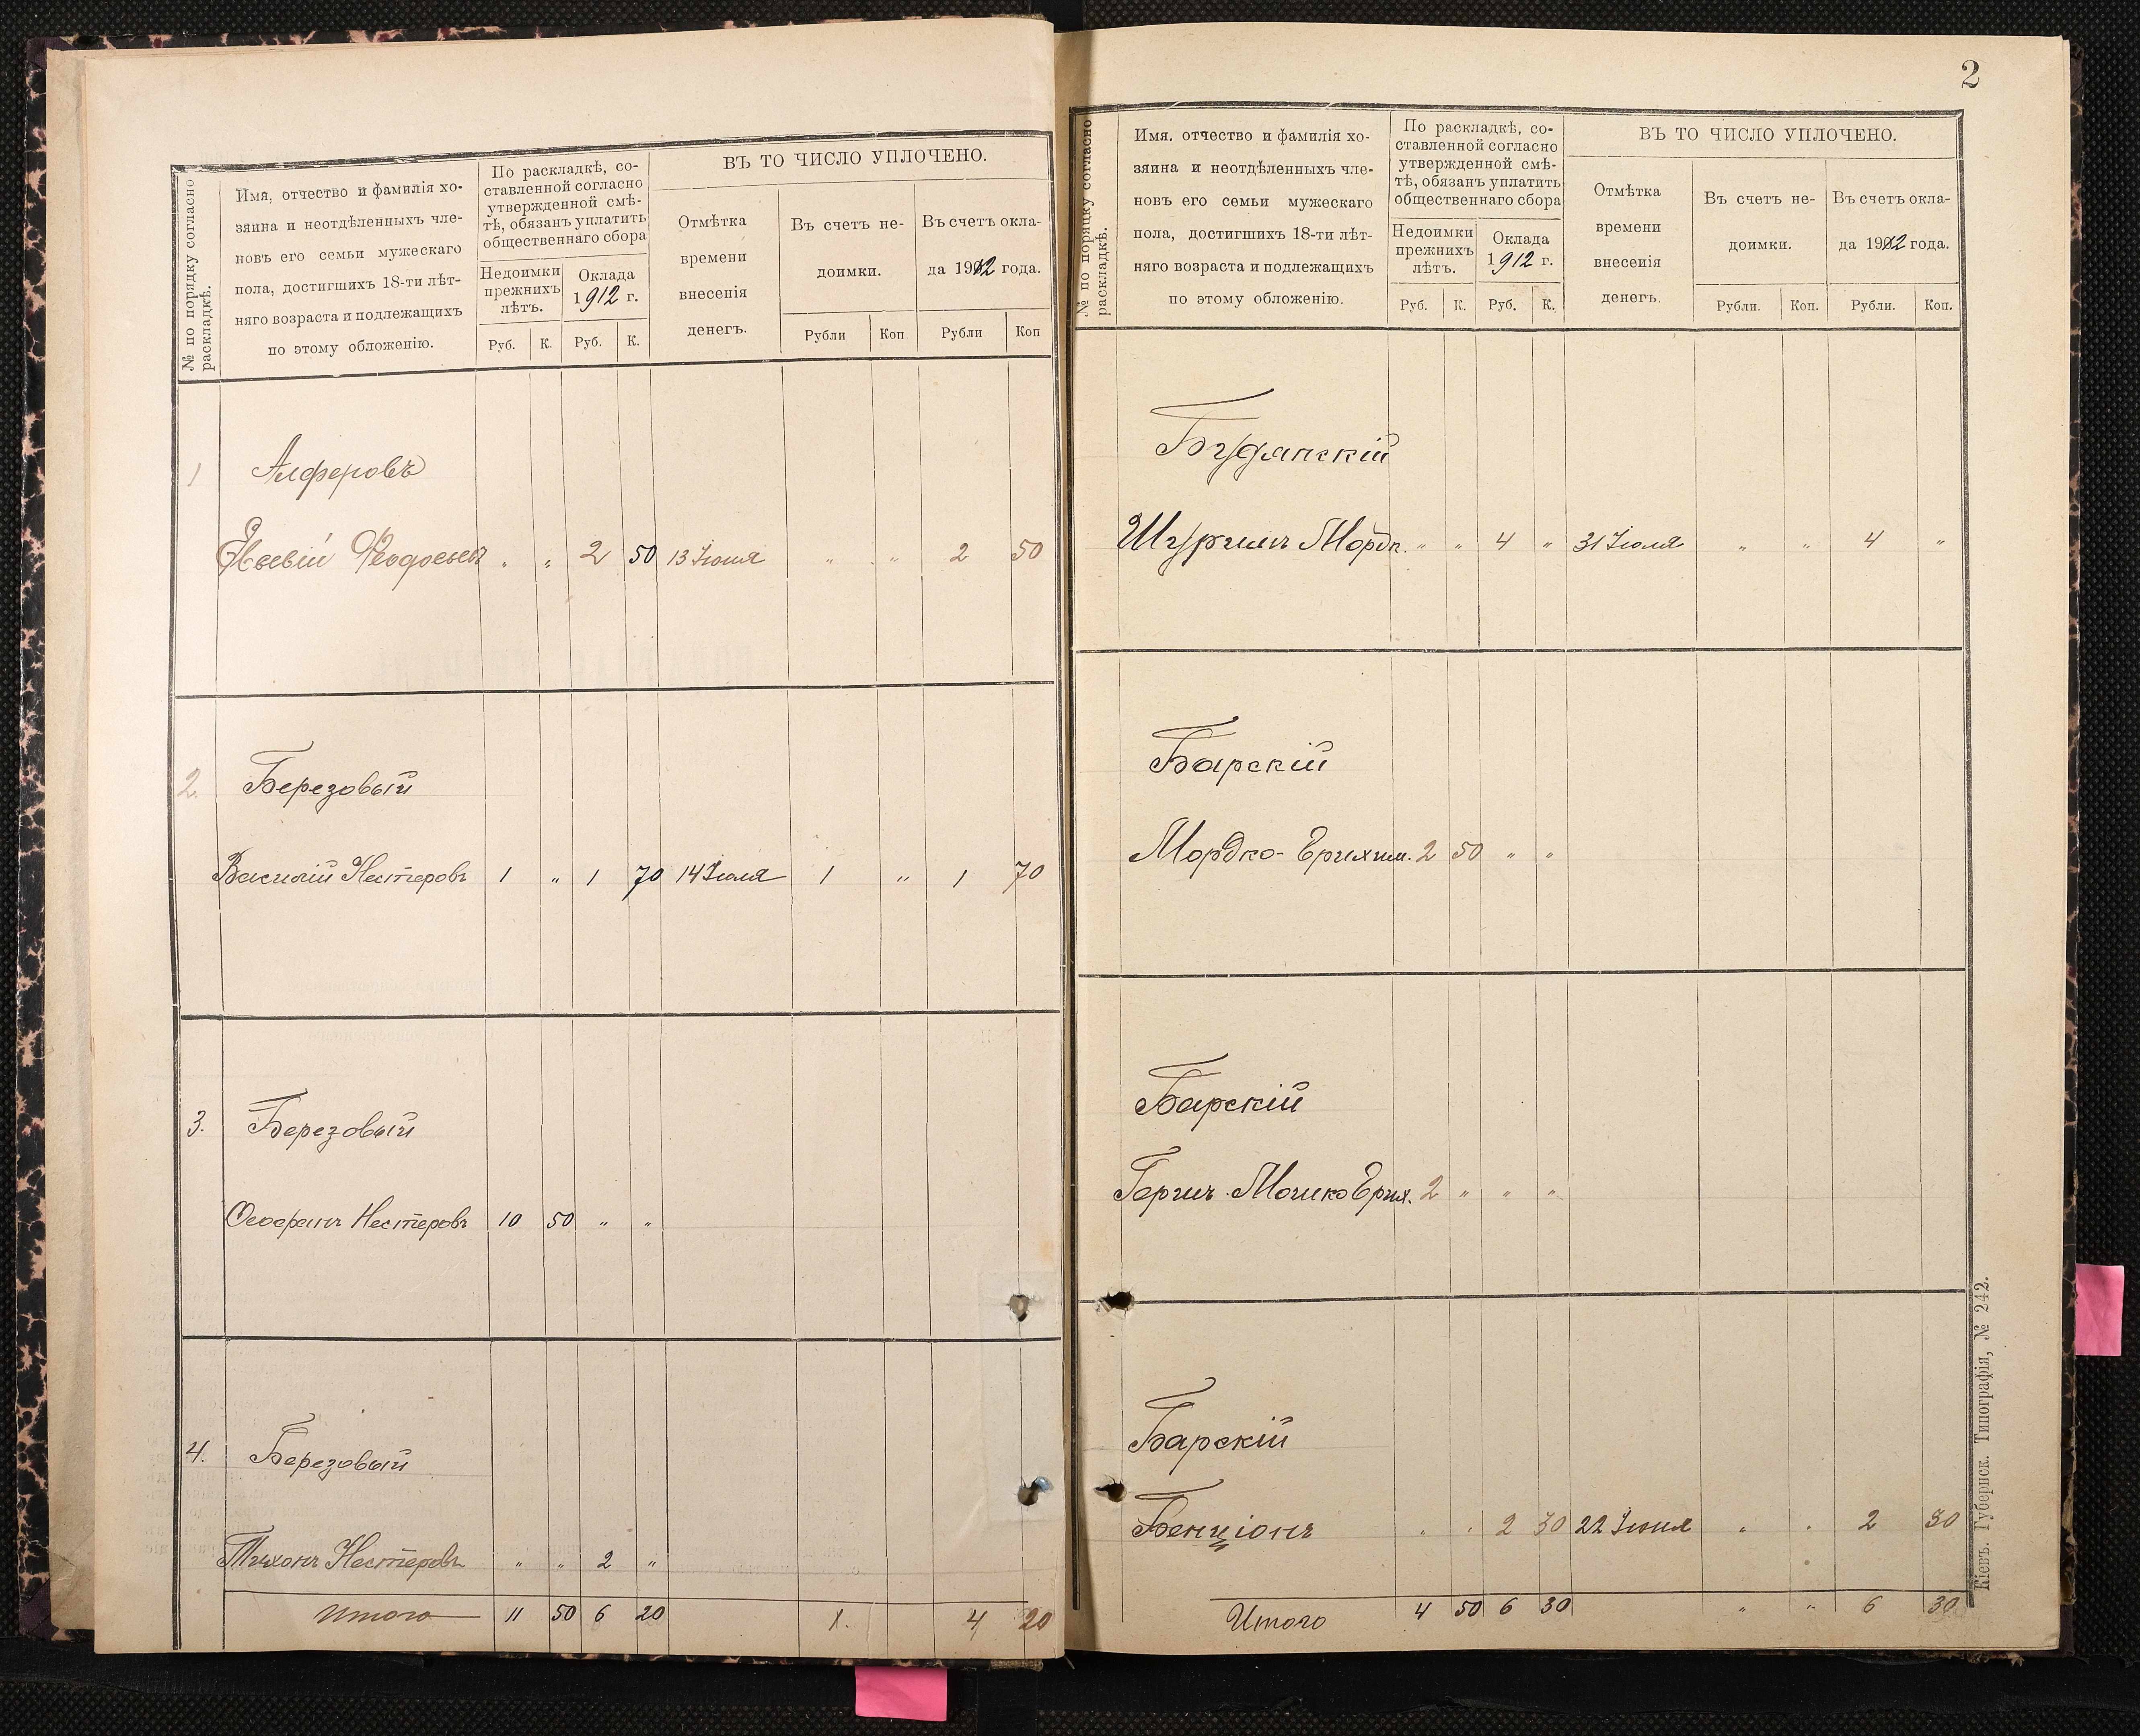 № по порядку согласно
раскладкѣ.
Имя, отчество и фамилія хо-
зяина и неотдѣленныхъ чле-
новъ его семьи мужескаго
пола, достигшихъ 18-ти лѣт-
няго возраста и подлежащихъ
по этому обложенію.
По раскладкѣ, со-
ставленной согласно
утвержденной смѣ-
тѣ, обязанъ уплатить
общественнаго сбора
Недоимки
прежнихъ
лѣтъ.
Оклада
1912 г.
Руб. К. Руб. К.
ВЪ ТО ЧИСЛО УПЛОЧЕНО.
Отмѣтка
времени
внесенія
денегъ.
Въ счетъ не-
доимки.
Въ счетъ окла-
да 1912 года.
Рубли Коп Рубли Коп
1 Алферовъ
Евсевій Феодосьев " " 2 50 13 Іюня " " 2 50
2. Березовый
Василій Нестеровъ 1 " 1 70 14 Іюля 1 " 1 70
3. Березовый
Феофанъ Нестеровъ 10 50 " "
4. Березовый
Тихонъ Нестеровъ " " 2 "
Итого 11 50 6 20 1. 4 20
2
№ по порядку согласно
раскладкѣ.
Имя, отчество и фамилія хо-
зяина и неотдѣленныхъ чле-
новъ его семьи мужескаго
пола, достигшихъ 18-ти лѣт-
няго возраста и подлежащихъ
по этому обложенію.
По раскладкѣ, со-
ставленной согласно
утвержденной смѣ-
тѣ, обязанъ уплатить
общественнаго сбора
Недоимки
прежнихъ
лѣтъ.
Оклада
1912 г.
Руб. К. Руб. К.
ВЪ ТО ЧИСЛО УПЛОЧЕНО.
Отмѣтка
времени
внесенія
денегъ.
Въ счетъ не-
доимки.
Въ счетъ окла-
да 1912 года.
Рубли. Коп. Рубли. Коп.
Будянскій
Шуримъ Мордк. " " 4 " 31 Іюля " " 4 "
Барскій
Мордко-Ерихим. 2 50 " "
Барскій
Гершъ. Мошко Ерих. 2 " " "
Барскій
Бенціонъ " " 2 30 22 Іюня " " 2 30
Итого 4 50 6 30 " " 6 30
Кіевъ. Губернск. Типографія, № 242.